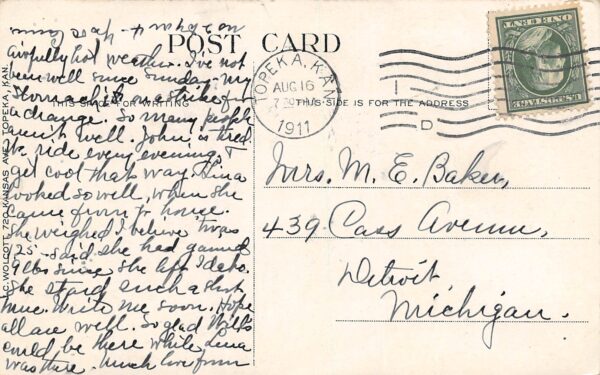 POST CARD
THIS SPACE FOR WRITING
THIS SIDE IS FOR THE ADDRESS
TOPEKA, KAN.
AUG 16
1911
I
D
ONE CENT
U.S. POSTAGE
H.C. WOLCOTT, 720 KANSAS AVE., TOPEKA, KAN.
Awfully hot weather. I've not
been well since Sunday - my
Stomach it's on a strike for
a change. So many people
aren't well. John is tired.
We ride every evening &
get cool that way. Lina
looked so well, when she
came from Fr. house.
She weighed I believe twas
125 - said she had gained
9 lbs since she left Idaho.
She stayed such a short
time. Write me soon. Hope
all are well. So glad
could be there while Lina
was there. Much love from
Mrs. M. E. Baker,
439 Cass Avenue,
Detroit
Michigan.